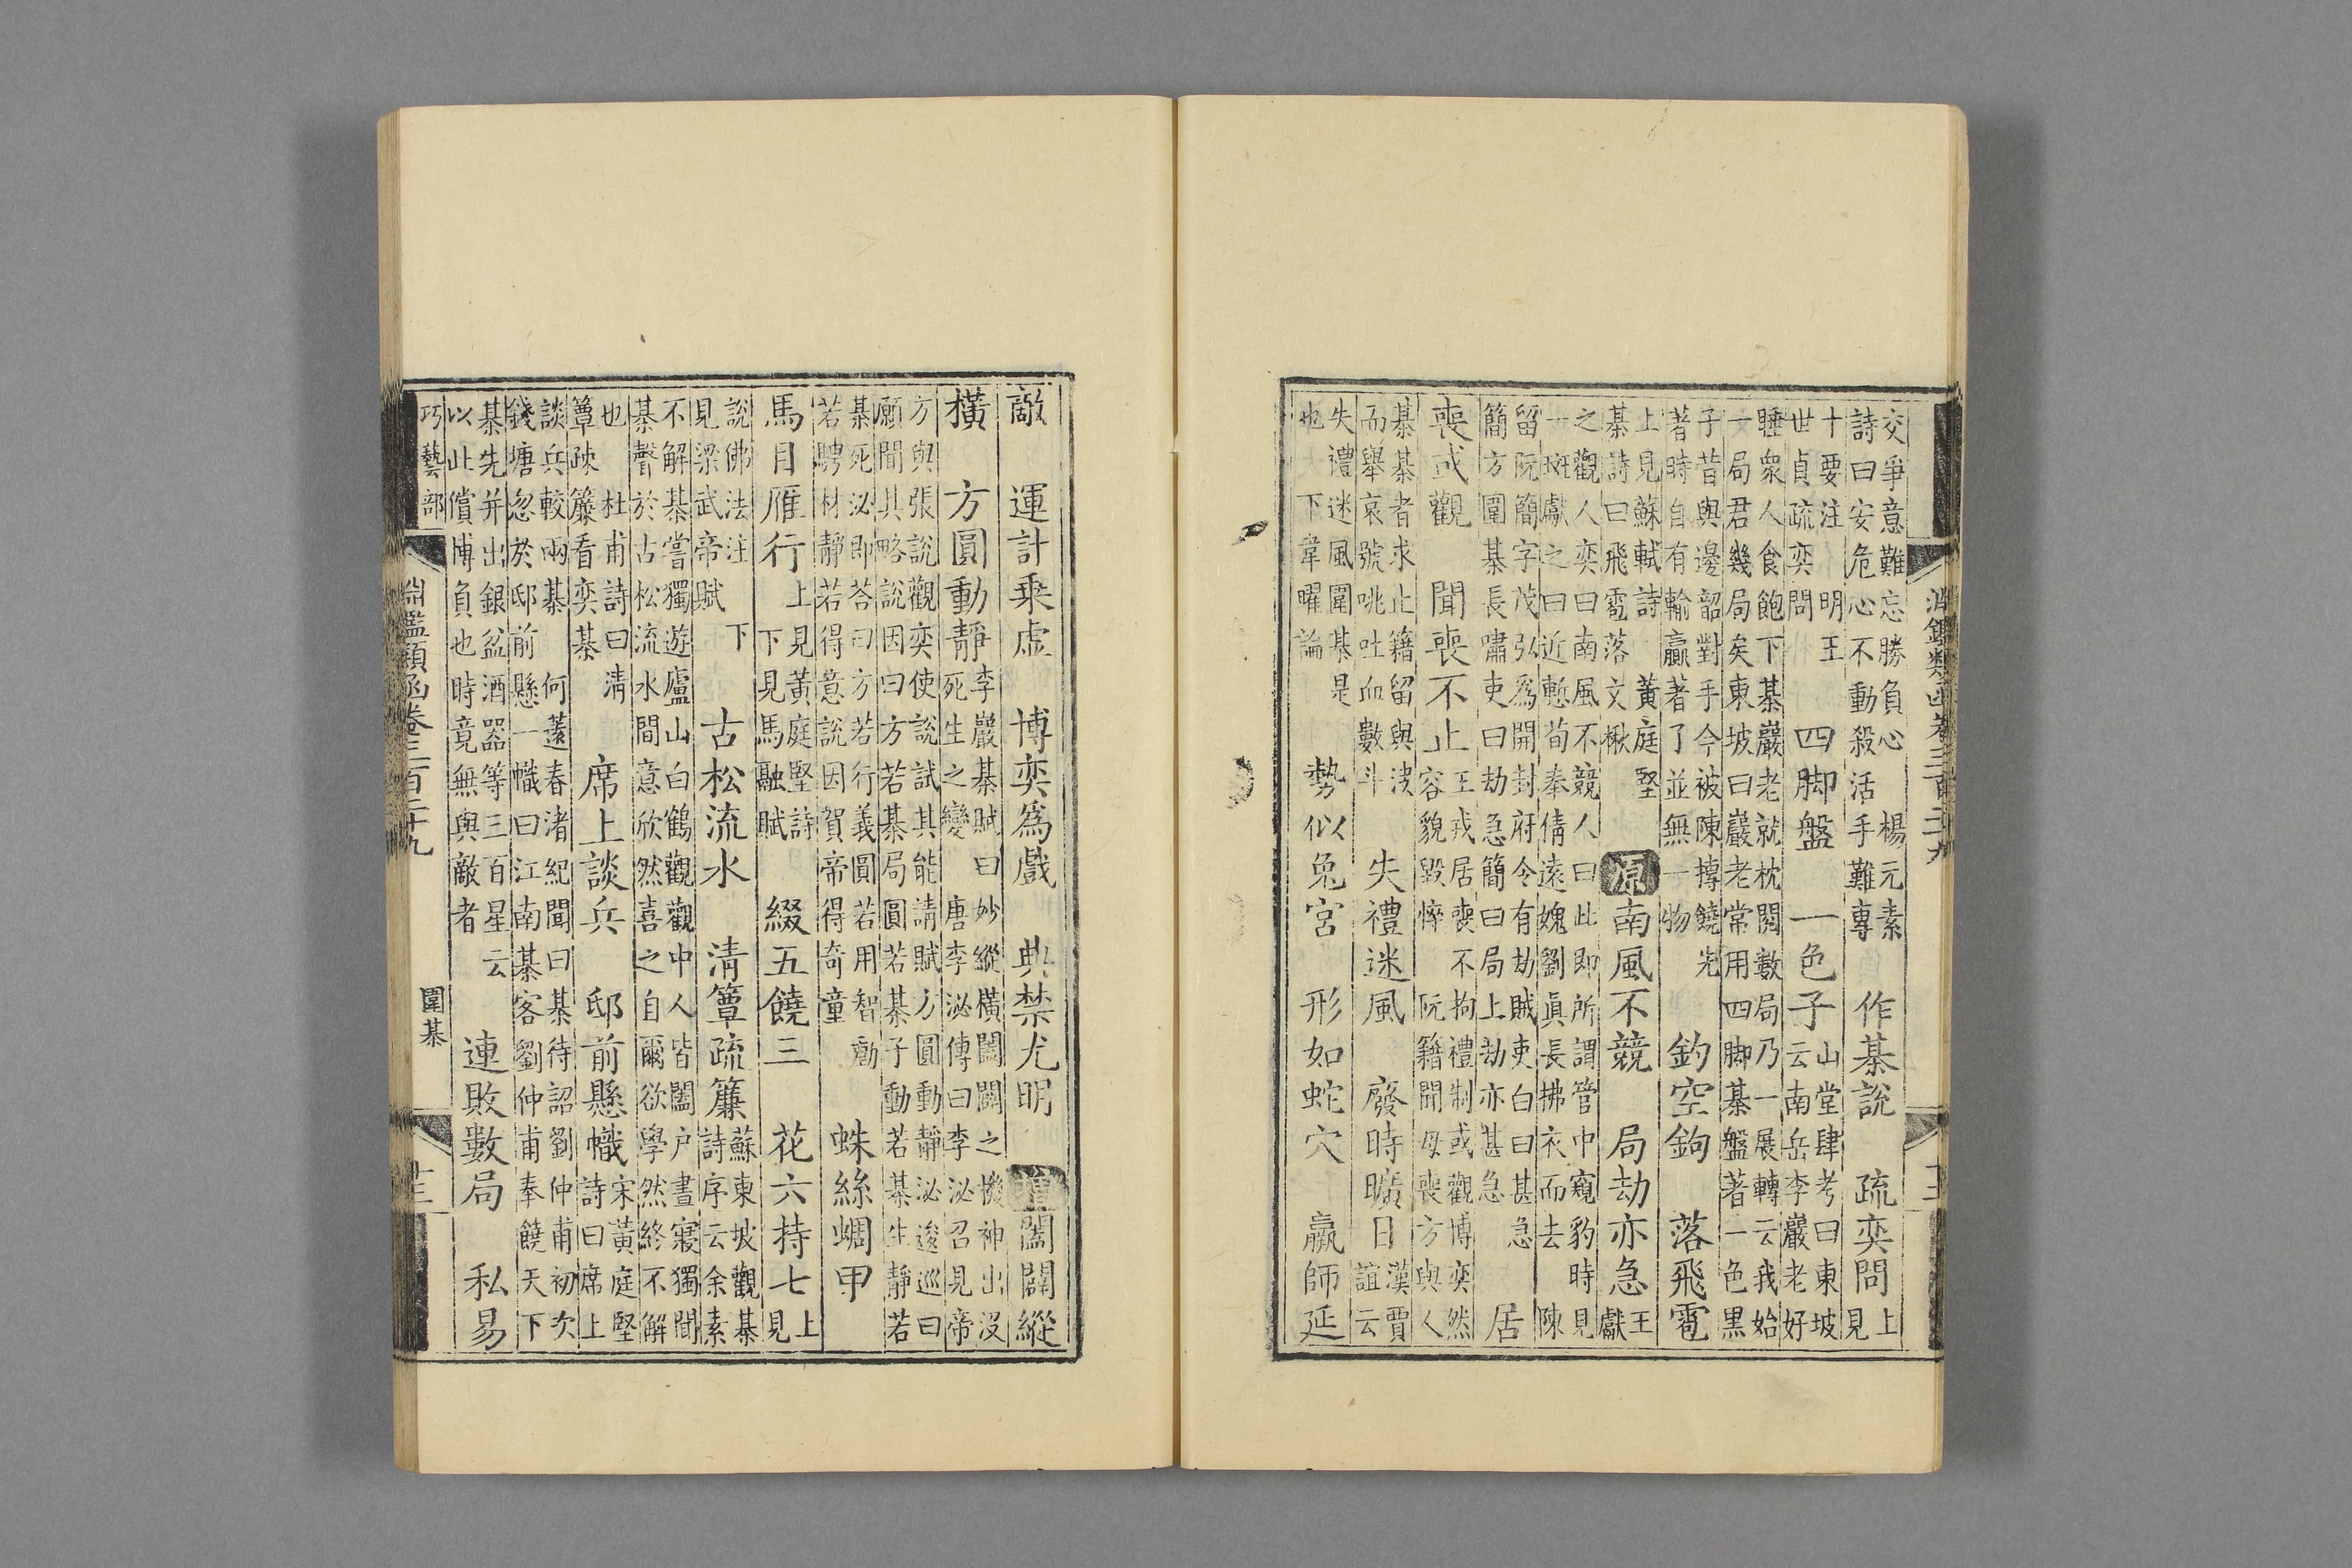 淵鑑類函卷三百二十九
交爭意難忘勝負心 楊元素
詩曰安危心不動殺活手難專
作棊說 疏奕問
上
見
十要注 明王
世貞疏奕問
四脚盤 一色子
山堂肆考曰東坡
云南岳李巖老好
睡衆人食飽下棊巖老就枕閱數局乃一展轉云我始
一局君幾局矣東坡曰巖老常用四脚棊盤著一色黑
子昔與邊韶對手今被陳摶饒先
著時自有輸贏著了並無一物
釣空鉤 落飛雹
上見蘇軾詩 黃庭堅
棊詩曰飛雹落文楸
原 南風不競 局劫亦急
王
獻
之觀人奕曰南風不競人曰此即所謂管中窺豹時見
一斑獻之曰近慙荀奉倩遠媿劉眞長拂衣而去 陳
留阮簡字茂弘爲開封府令有劫賊吏白曰甚急
簡方圍棊長嘯吏曰劫急簡曰局上劫亦甚急
居
喪或觀 聞喪不止
王戎居喪不拘禮制或觀博奕然
容貌毀悴 阮籍聞母喪方與人
棊棊者求止籍留與決
而舉哀號咷吐血數斗
失禮迷風 廢時曠日
漢賈
誼云
失禮迷風圍棊是
也 下韋曜論
勢似兔宮 形如蛇穴 贏師延
敵 運計乘虛 博奕爲戲 典禁尤明 增 闔闢縱
橫 方圓動靜
李巖棊賦曰妙縱橫闔闢之機神出沒
死生之變 唐李泌傳曰李泌召見帝
方與張說觀奕使說試其能請賦方圓動靜泌逡巡曰
願聞其略說因曰方若棊局圓若棊子動若棊生靜若
棊死泌即荅曰方若行義圓若用智動
若騁材靜若得意說因賀帝得奇童
蛛絲蜩甲
馬目雁行
上見黃庭堅詩
下見馬融賦
綴五饒三 花六持七
上
見
說佛法注 下
見梁武帝賦
古松流水 清簟疏簾
蘇東坡觀棊
詩序云余素
不解棊嘗獨遊廬山白鶴觀觀中人皆闔户晝寢獨聞
棊聲於古松流水間意欣然喜之自爾欲學然終不解
也 杜甫詩曰淸
簟疎簾看奕棊
席上談兵 邸前懸幟
宋黃庭堅
詩曰席上
談兵較兩棊 何薳春渚紀聞曰棊待詔劉仲甫初次
錢塘忽於邸前懸一幟曰江南棊客劉仲甫奉饒天下
棊先并出銀盆酒器等三百星云
以此償博負也時竟無與敵者
連敗數局 私易
巧藝部
淵鑑類函卷三百二十九
圍棊
十三